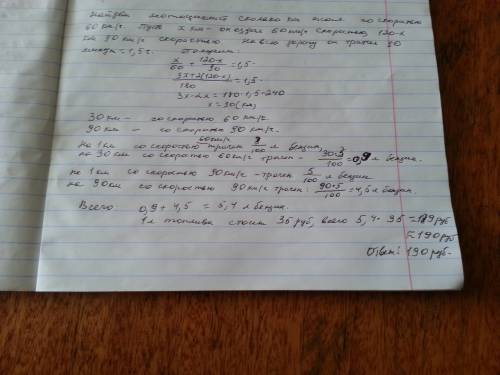 Найдем мотоциклист сколько км ехал со скоростью
60 км/ч. Пусть x км - он ехал 60 км/ч скоростью, 120-x
км 90 км/ч скоростью. На всю дорогу он тратил 30
минут = 1,5 ч. Получим:
x/60 + 120-x/90 = 1,5
3x+2(120-x)/180 = 1,5
3x-2x = 180·1,5-240
x = 30 (км)
30 км - со скоростью 60 км/ч.
90 км - со скоростью 90 км/ч.
на 1 км со скоростью 60 км/ч тратил 3/100 л бензин,
на 30 км со скоростью 60 км/ч тратил - 30·3/100 = 0,9 л бензин.
на 1 км со скоростью 90 км/ч - тратил 5/100 л бензин
на 90 км со скоростью 90 км/ч тратил: 90·5/100 = 4,5 л бензин.
Всего 0,9 + 4,5 = 5,4 л бензин.
1 л топлива стоит 35 руб, всего 5,4 · 35 = 189 руб
≈ 190 руб
Ответ: 190 руб.